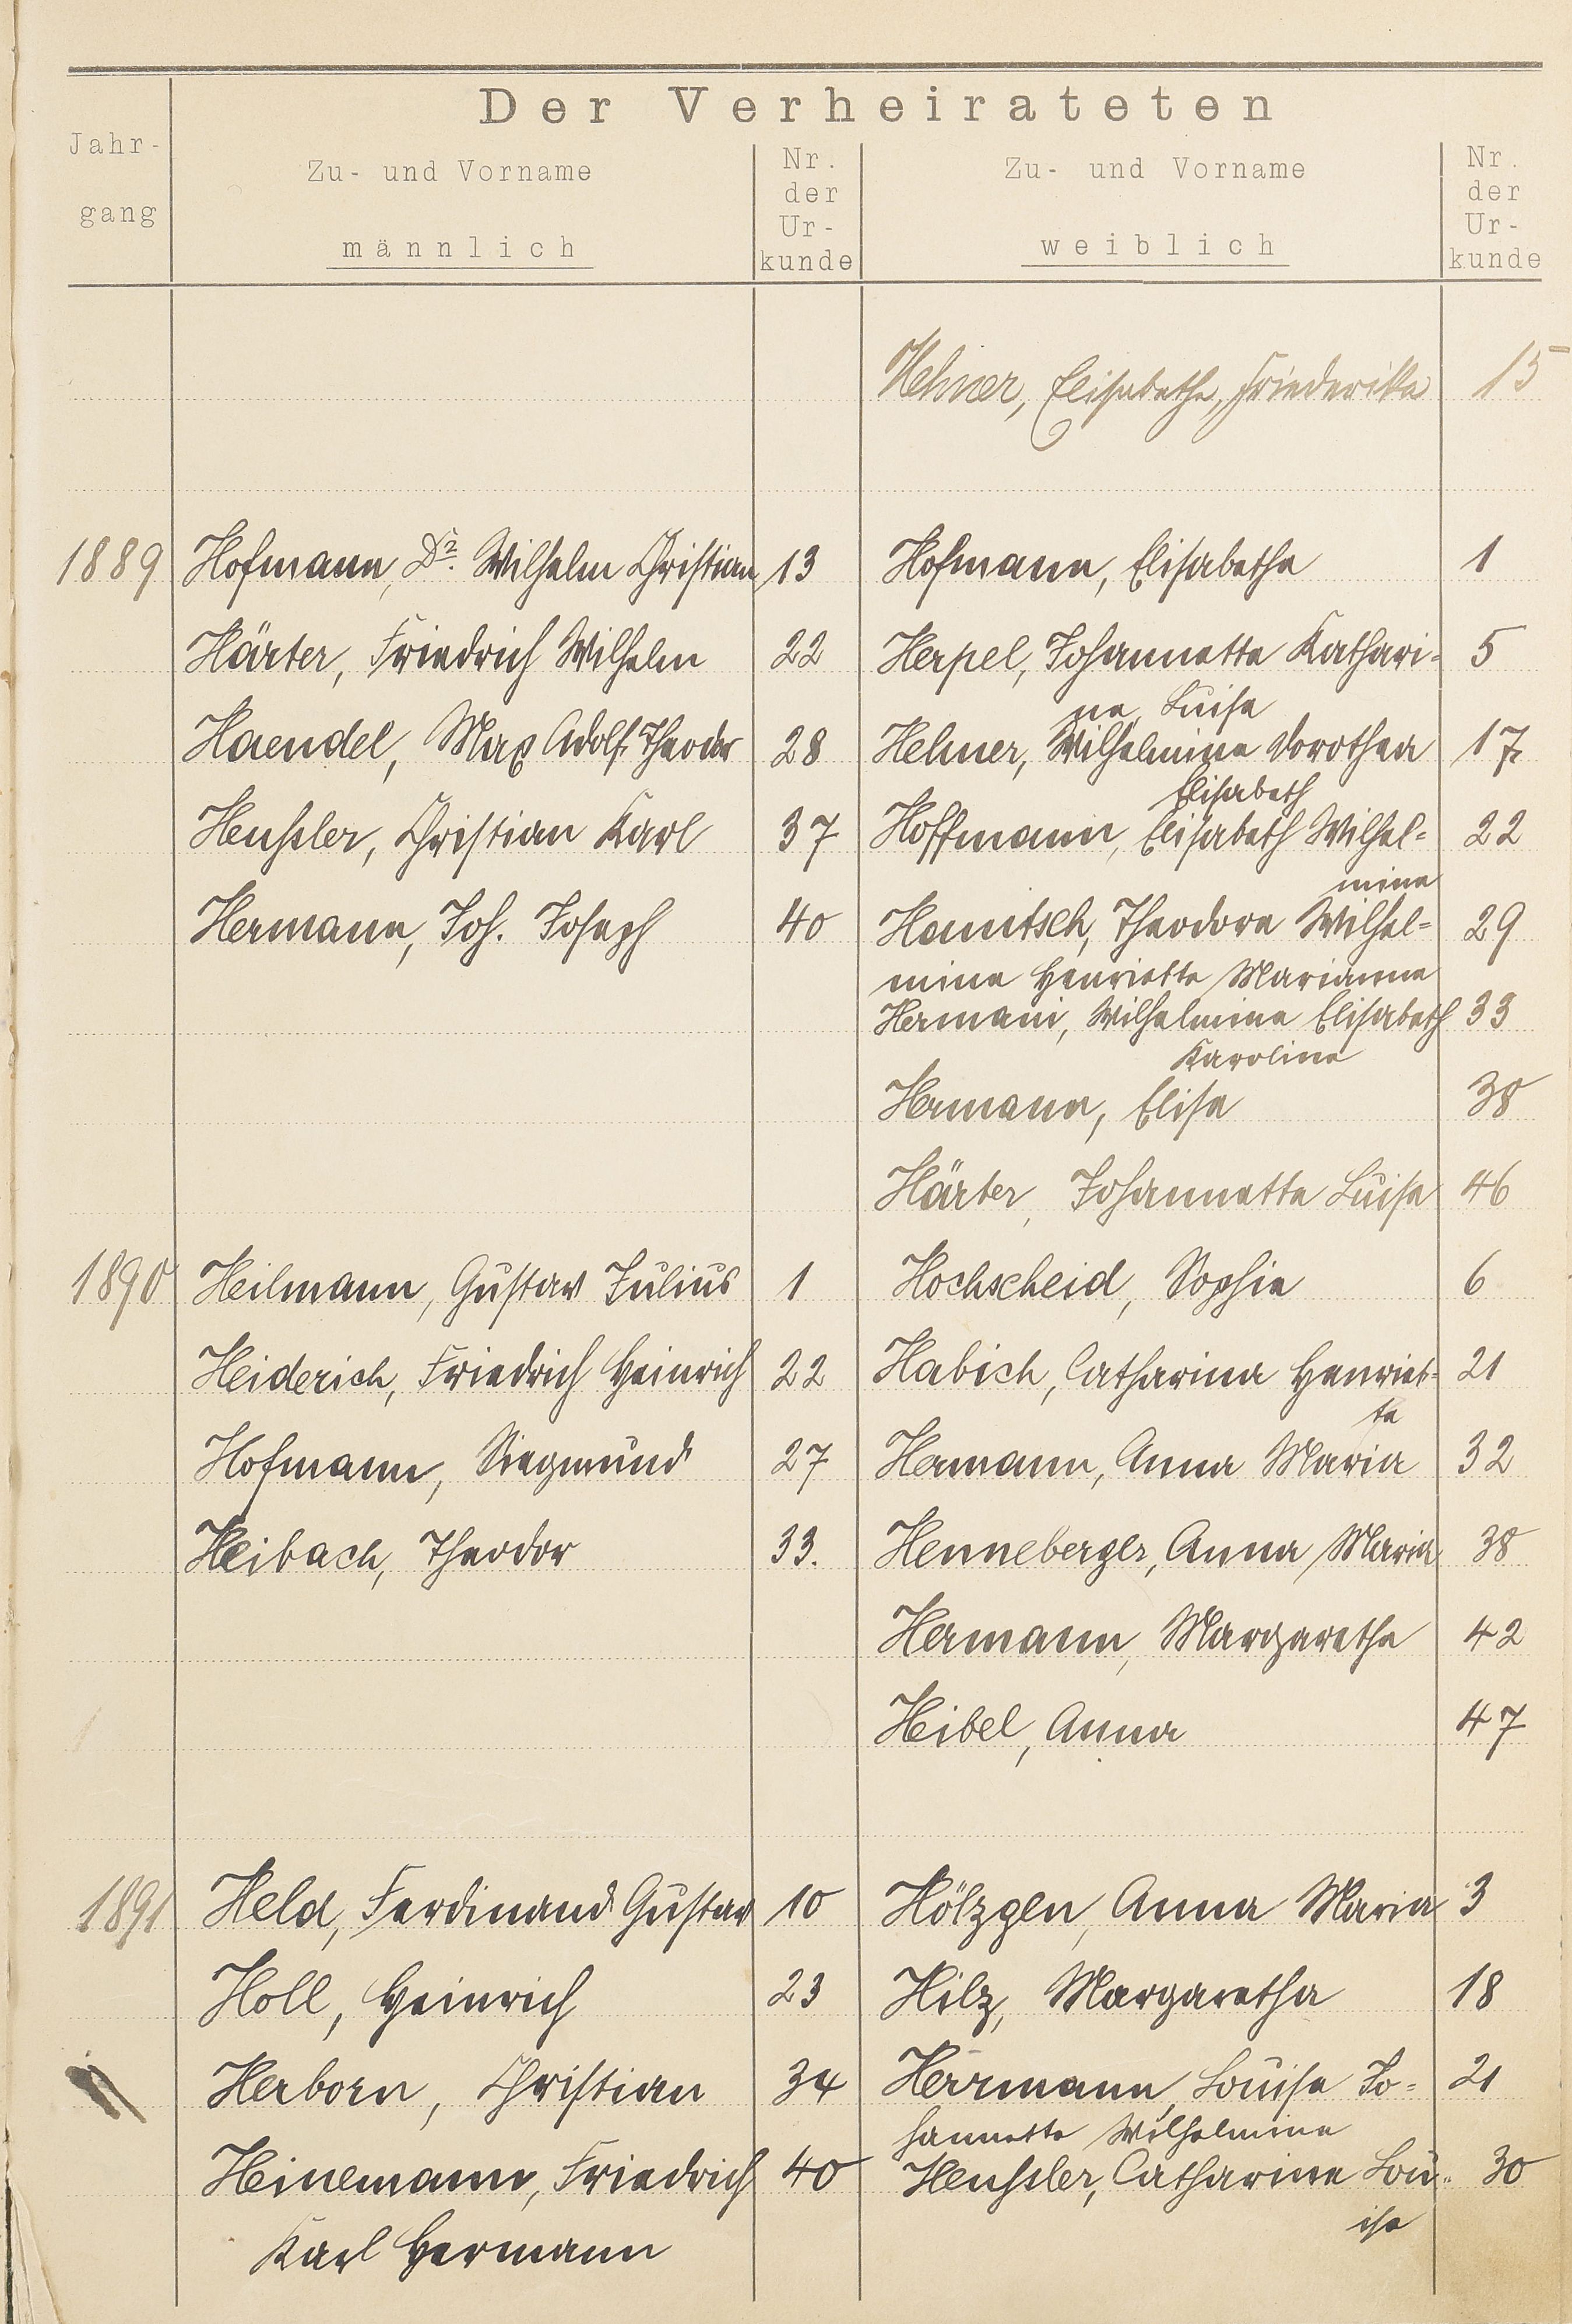 Der Verheirateten
Jahr-
gang
Zu- und Vorname
männlich
Nr.
der
Ur-
kunde
Zu- und Vorname
weiblich
Nr.
der
Ur-
kunde
Hehner, Elisabethe, Friederike 15
1889 Hofmann, Dr. Wilhelm Christian 13 Hofmann, Elisabetha 1
Härter, Friedrich Wilhelm 22 Herpel, Johannette Kathari-
ne, Luise 5
Haendel, Max Adolf Theodor 28 Hehner, Wilhelmine Dorothea 17
Elisabeth
Heußler, Christian Karl 37 Hoffmann, Elisabeth Wilhel- 22
mine
Hermann, Joh. Joseph 40 Hanitsch, Theodora Wilhel- 29
mine Henriette Marianne
Hermani, Wilhelmine Elisabeth 33
Karoline
Hermann, Elise 38
Härter, Johannette Luise 46
1890 Heilmann, Gustav Julius 1 Hochscheid, Sophie 6
Heiderich, Friedrich Heinrich 22 Habich, Catharina Henriet- 21
te
Hofmann, Siegmund 27 Hermann, Anna Maria 32
Heibach, Theodor 33. Henneberger, Anna Maria 38
Hermann, Margarethe 42
Heibel, Anna 47
1891 Held, Ferdinand Gustav 10 Hölzgen, Anna Maria 3
Holl, Heinrich 23 Hilz, Margaretha 18
Herborn, Christian 34 Herrmann, Louise Jo- 21
hannette Wilhelmine
Heinemann, Friedrich 40 Heußler, Catharine Lou- 30
ise
Karl Hermann